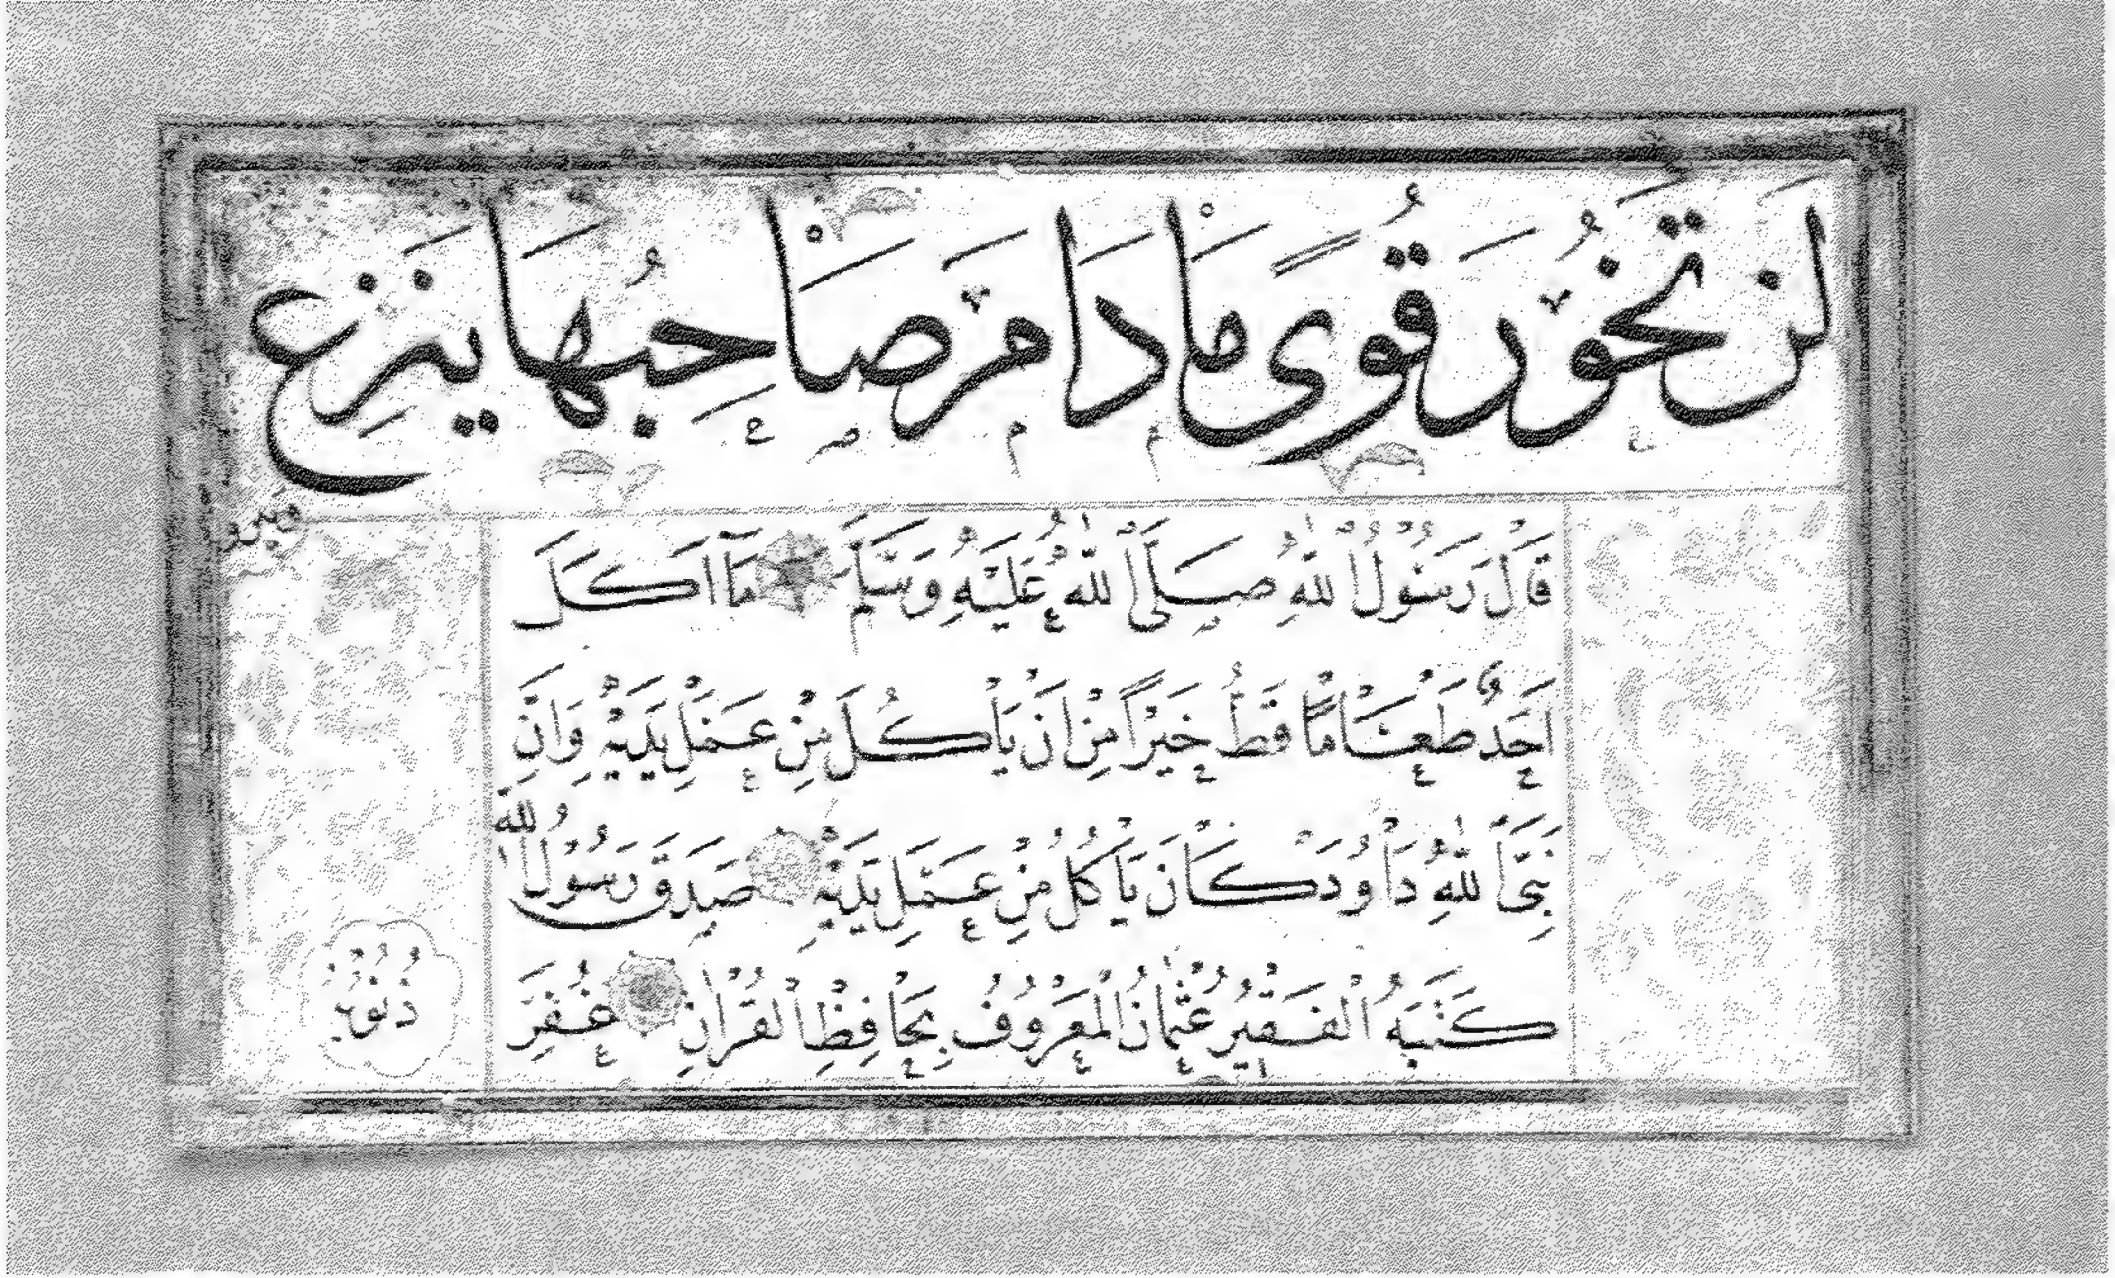 لَنْ تَخُورَ قُوًى مَا دَامَ صَاحِبُهَا يَنْزِعُ
وينزو
قَالَ رَسُولُ اللّٰهِ صَلَّى اللّٰهُ عَلَيْهِ وَسَلَّمَ مَا أَكَلَ
أَحَدٌ طَعَامًا قَطُّ خَيْرًا مِنْ أَنْ يَأْكُلَ مِنْ عَمَلِ يَدَيْهِ وَإِنَّ
نَبِيَّ اللّٰهِ دَاوُدَ كَانَ يَأْكُلُ مِنْ عَمَلِ يَدَيْهِ صَدَقَ رَسُولُ اللّٰهِ
كَتَبَهُ الْفَقِيرُ عُثْمَانُ الْمَعْرُوفُ بِحَافِظِ الْقُرْآنِ غُفِرَ
ذُنُوبُهُ